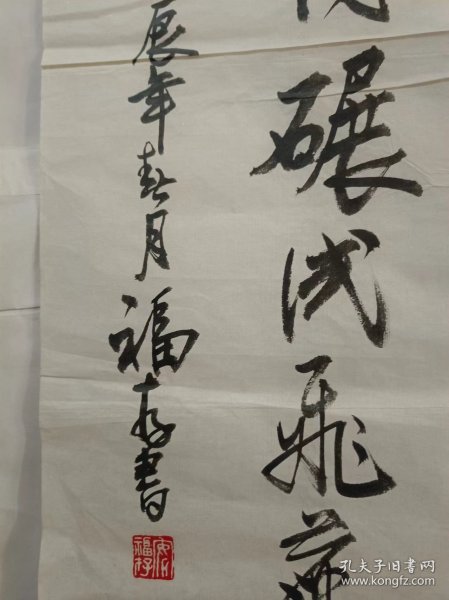 碾成飛
辰年春月福存書
福存
孔夫子旧书网
www.kongfz.com